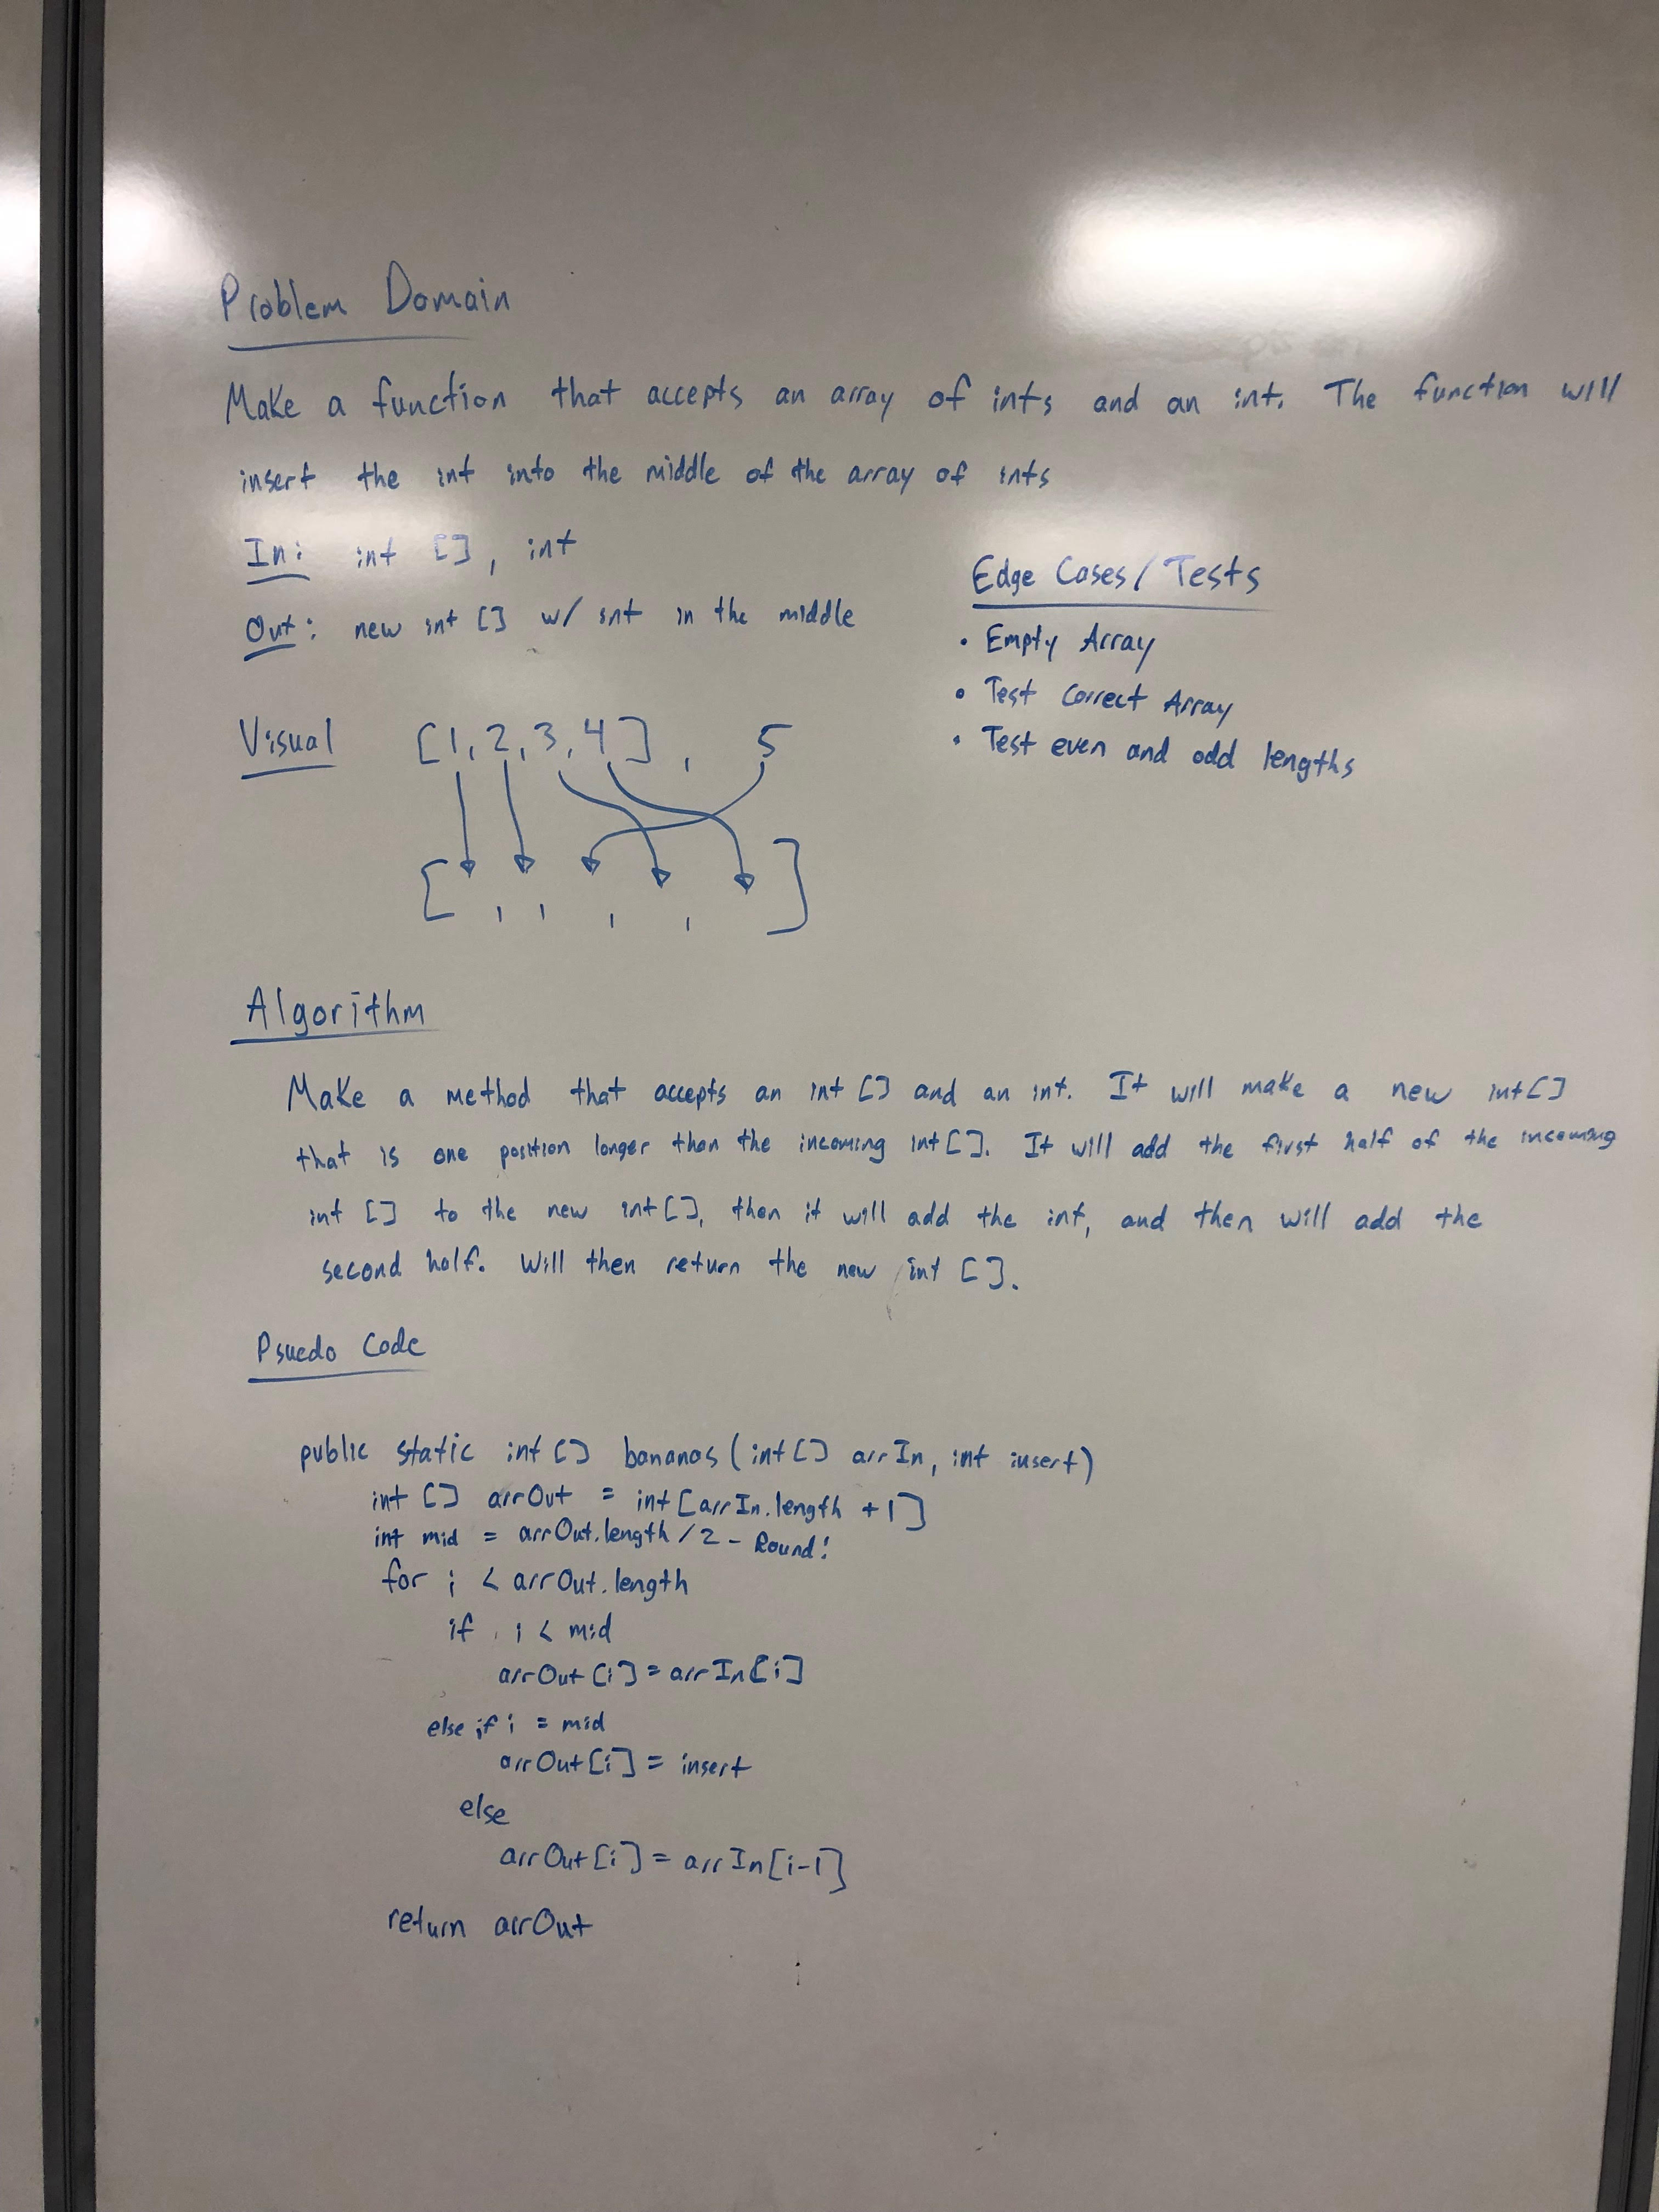 Problem Domain
Make a function that accepts an array of ints and an int. The function will
insert the int into the middle of the array of ints
In: int [], int
Out: new int [] w/ int in the middle
Edge Cases/Tests
• Empty Array
• Test Correct Array
• Test even and odd lengths
Visual [1,2,3,4], 5
[ , , , , ]
Algorithm
Make a method that accepts an int [] and an int. It will make a new int[]
that is one position longer than the incoming int[]. It will add the first half of the incoming
int [] to the new int[], then it will add the int, and then will add the
second half. Will then return the new int [].
Psuedo Code
public static int [] bananas (int[] arrIn, int insert)
int [] arrOut = int[arrIn.length +1]
int mid = arrOut.length/2 - Round!
for i < arrOut.length
if i < mid
arrOut[i] = arrIn[i]
else if i = mid
arrOut[i] = insert
else
arrOut[i] = arrIn[i-1]
return arrOut